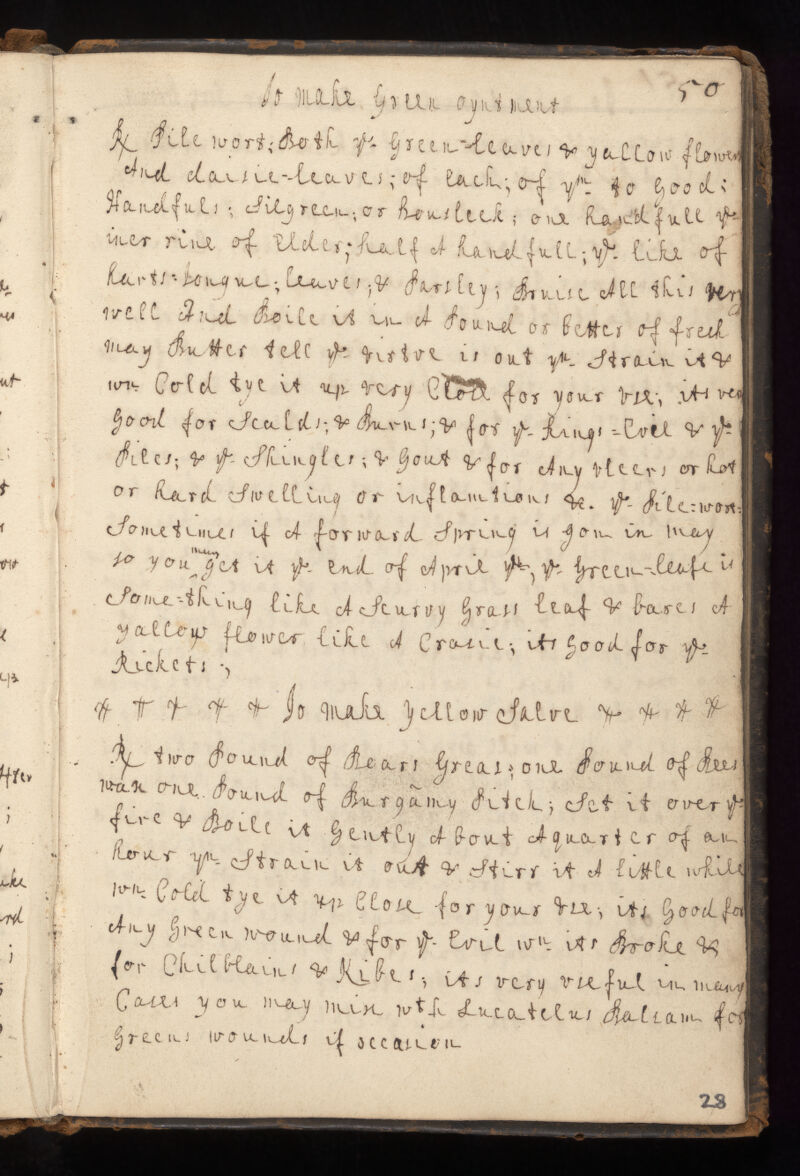 50
To make Green oyntment
℞ Pile wort; Both ye Green=leaves & yallow flower
And daisie-leaves; of each; of ym to good;
Handfuls; Silgreen; or housleek; one handfull ye
iner rine of Elder; half A handfull; ye like of
harts=tongue; leaves; & Parsley; Bruise All this very
well And Boile it in A Pound or better of fresh
may Butter tell ye virtve is out yn Strain it &
wn Cold tye it up very Close for your vse; its very
Good for Scalds; & Burns; & for ye Kings=Evil & ye
Piles; & ye Shingles; & Gout & for Any vlcers or hot
or hard Swelling or inflamtions &c. ye Pile=wort
Sometimes if A forward Spring is gon in may
so you must get it ye end of April ye; ye Green=leafe is
Some=thing like A Scurvy Grass leaf & bares A
yallow flower like A Crasie; its Good for ye
Rickets;
To make yellow Salve
℞ two Pound of Bears Greas; one Pound of Bees
wax one Pound of Burgamy Pitch; Set it over ye
fire & Boile it Gently About Aquarter of an
hour yn Strain it out & Stirr it A little while
wn Cold tye it up Close for your vse; its Good for
Any Green wound & for ye Evil wn its Broke &
for Chilblains & Kibes; its very vseful in many
Cases you may mix wth Lucatelus Balsam for
Greens wounds if occasion
28